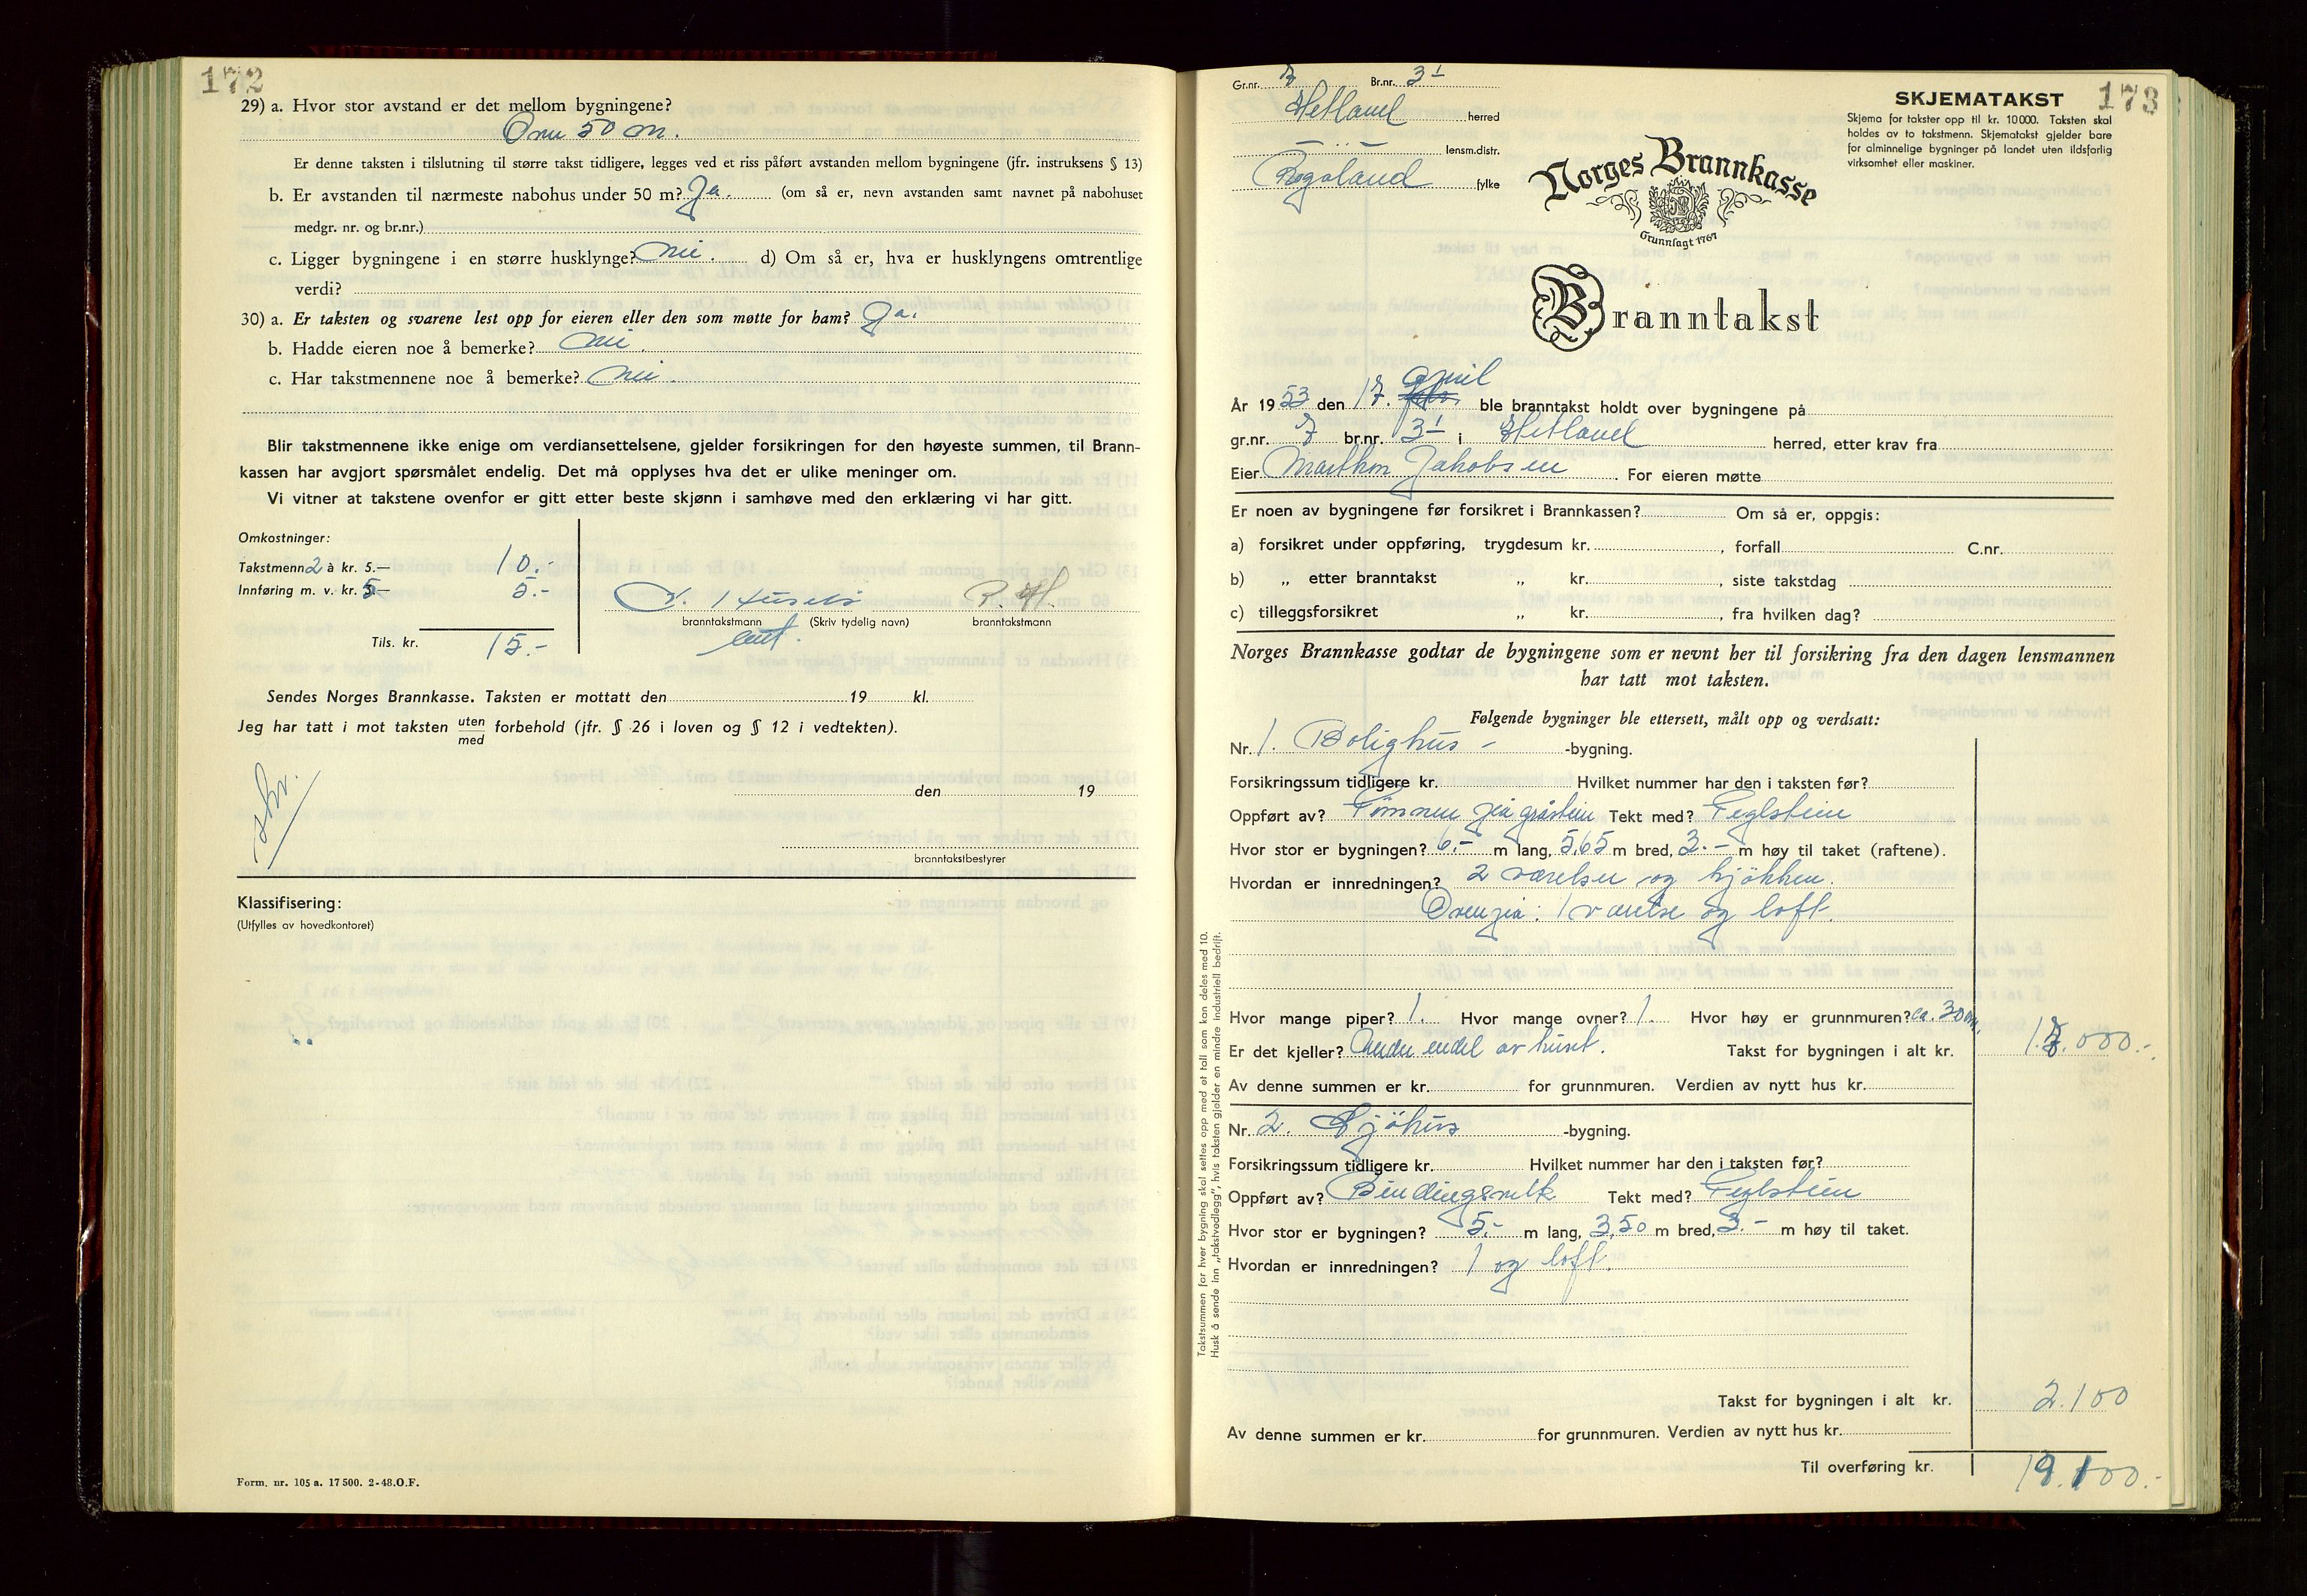 172
29) a. Hvor stor avstand er det mellom bygningene?
Over 50 m.
Er denne taksten i tilslutning til større takst tidligere, legges ved et riss påført avstanden mellom bygningene (jfr. instruksens § 13)
b. Er avstanden til nærmeste nabohus under 50 m? Ja. (om så er, nevn avstanden samt navnet på nabohuset
medgr. nr. og br.nr.)
c. Ligger bygningene i en større husklynge? nei. d) Om så er, hva er husklyngens omtrentlige
verdi?
30) a. Er taksten og svarene lest opp for eieren eller den som møtte for ham? Ja.
b. Hadde eieren noe å bemerke? nei.
c. Har takstmennene noe å bemerke? nei.
Blir takstmennene ikke enige om verdiansettelsene, gjelder forsikringen for den høyeste summen, til Brann-
kassen har avgjort spørsmålet endelig. Det må opplyses hva det er ulike meninger om.
Vi vitner at takstene ovenfor er gitt etter beste skjønn i samhøve med den erklæring vi har gitt.
Omkostninger:
Takstmenn 2 à kr. 5.— 10.-
Innføring m. v. kr. 5— 5.-
branntakstmann (Skriv tydelig navn) branntakstmann
Tils. kr. 15.-
Sendes Norges Brannkasse. Taksten er mottatt den 19 kl.
Jeg har tatt i mot taksten uten forbehold (jfr. § 26 i loven og § 12 i vedtekten).
med
den 19
branntakstbestyrer
Klassifisering:
(Utfylles av hovedkontoret)
Form. nr. 105 a. 17 500. 2-48.O.F.
Gr.nr. 7 Br.nr. 31
Hetland herred
lensm.distr.
Rogaland fylke
SKJEMATAKST 173
Skjema for takster opp til kr. 10 000. Taksten skal
holdes av to takstmenn. Skjematakst gjelder bare
for alminnelige bygninger på landet uten ildsfarlig
virksomhet eller maskiner.
Norges Brannkasse
Grunnlagt 1767
Branntakst
april
År 1953 den 17. ble branntakst holdt over bygningene på
gr.nr. 7 br.nr. 31 i Hetland herred, etter krav fra
Eier Marthon Jakobsen. For eieren møtte
Er noen av bygningene før forsikret i Brannkassen? Om så er, oppgis:
a) forsikret under oppføring, trygdesum kr. , forfall C.nr.
b) „ etter branntakst „ kr. , siste takstdag
c) tilleggsforsikret „ kr. , fra hvilken dag?
Norges Brannkasse godtar de bygningene som er nevnt her til forsikring fra den dagen lensmannen
har tatt mot taksten.
Følgende bygninger ble ettersett, målt opp og verdsatt:
Nr. 1. Bolighus - -bygning.
Forsikringssum tidligere kr. Hvilket nummer har den i taksten før?
Oppført av? Tømmer på gråstein Tekt med? Teglstein
Hvor stor er bygningen? 6.- m lang, 5,65 m bred, 3.- m høy til taket (raftene).
Hvordan er innredningen? 2 værelser og kjøkken.
Ovenpå: 1 værelse og loft.
Hvor mange piper? 1. Hvor mange ovner? 1. Hvor høy er grunnmuren? ca. 30 cm.
Er det kjeller? Under endel av huset. Takst for bygningen i alt kr. 17.000.-
Av denne summen er kr. for grunnmuren. Verdien av nytt hus kr.
Nr. 2. Sjøhus -bygning.
Forsikringssum tidligere kr. Hvilket nummer har den i taksten før?
Oppført av? Bindingsverk Tekt med? Teglstein
Hvor stor er bygningen? 5.- m lang, 3,50 m bred, 3.- m høy til taket.
Hvordan er innredningen? 1 og loft.
Takst for bygningen i alt kr. 2.100
Av denne summen er kr. for grunnmuren. Verdien av nytt hus kr.
Til overføring kr. 19.100.-
Takstsummen for hver bygning skal settes opp med et tall som kan deles med 10.
Husk å sende inn „takstvedlegg", hvis taksten gjelder en mindre industriell bedrift.